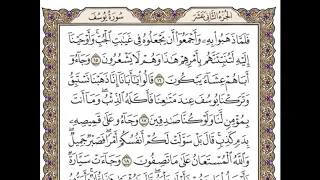 الجزء الثاني عشر سورة يوسف
فَلَمَّا ذَهَبُوا۟ بِهِۦ وَأَجْمَعُوٓا۟ أَن يَجْعَلُوهُ فِى غَيَـٰبَتِ ٱلْجُبِّ وَأَوْحَيْنَآ
إِلَيْهِ لَتُنَبِّئَنَّهُم بِأَمْرِهِمْ هَـٰذَا وَهُمْ لَا يَشْعُرُونَ ١٥ وَجَآءُوٓ
أَبَاهُمْ عِشَآءً يَبْكُونَ ١٦ قَالُوا۟ يَـٰٓأَبَانَآ إِنَّا ذَهَبْنَا نَسْتَبِقُ
وَتَرَكْنَا يُوسُفَ عِندَ مَتَـٰعِنَا فَأَكَلَهُ ٱلذِّئْبُ وَمَآ أَنتَ
بِمُؤْمِنٍ لَّنَا وَلَوْ كُنَّا صَـٰدِقِينَ ١٧ وَجَآءُو عَلَىٰ قَمِيصِهِۦ
بِدَمٍ كَذِبٍ قَالَ بَلْ سَوَّلَتْ لَكُمْ أَنفُسُكُمْ أَمْرًا فَصَبْرٌ جَمِيلٌ
وَٱللَّهُ ٱلْمُسْتَعَانُ عَلَىٰ مَا تَصِفُونَ ١٨ وَجَآءَتْ سَيَّارَةٌ